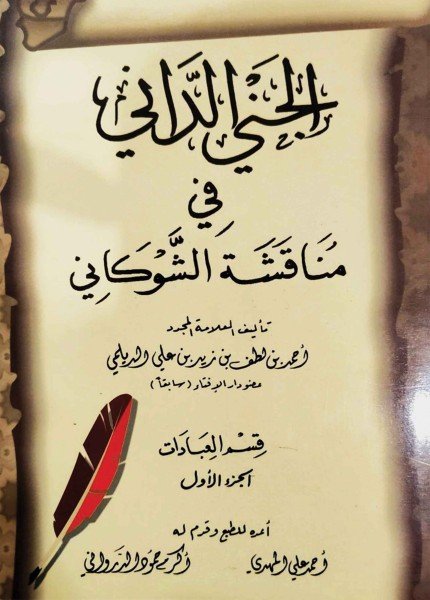 الجَنَى الدَّاني
فِي
مُنَاقَشَة الشَّوكَانِي
تأليف العلامة المجدد
أحمد بن لطف بن زيد بن علي الديلمي
عضو دار الإفتاء (سابقاً)
قِسم العِبَادَات
الجزء الأول
أعده للطبع وقدم له
أحمد علي المهدي أكرم حمود الذرواني